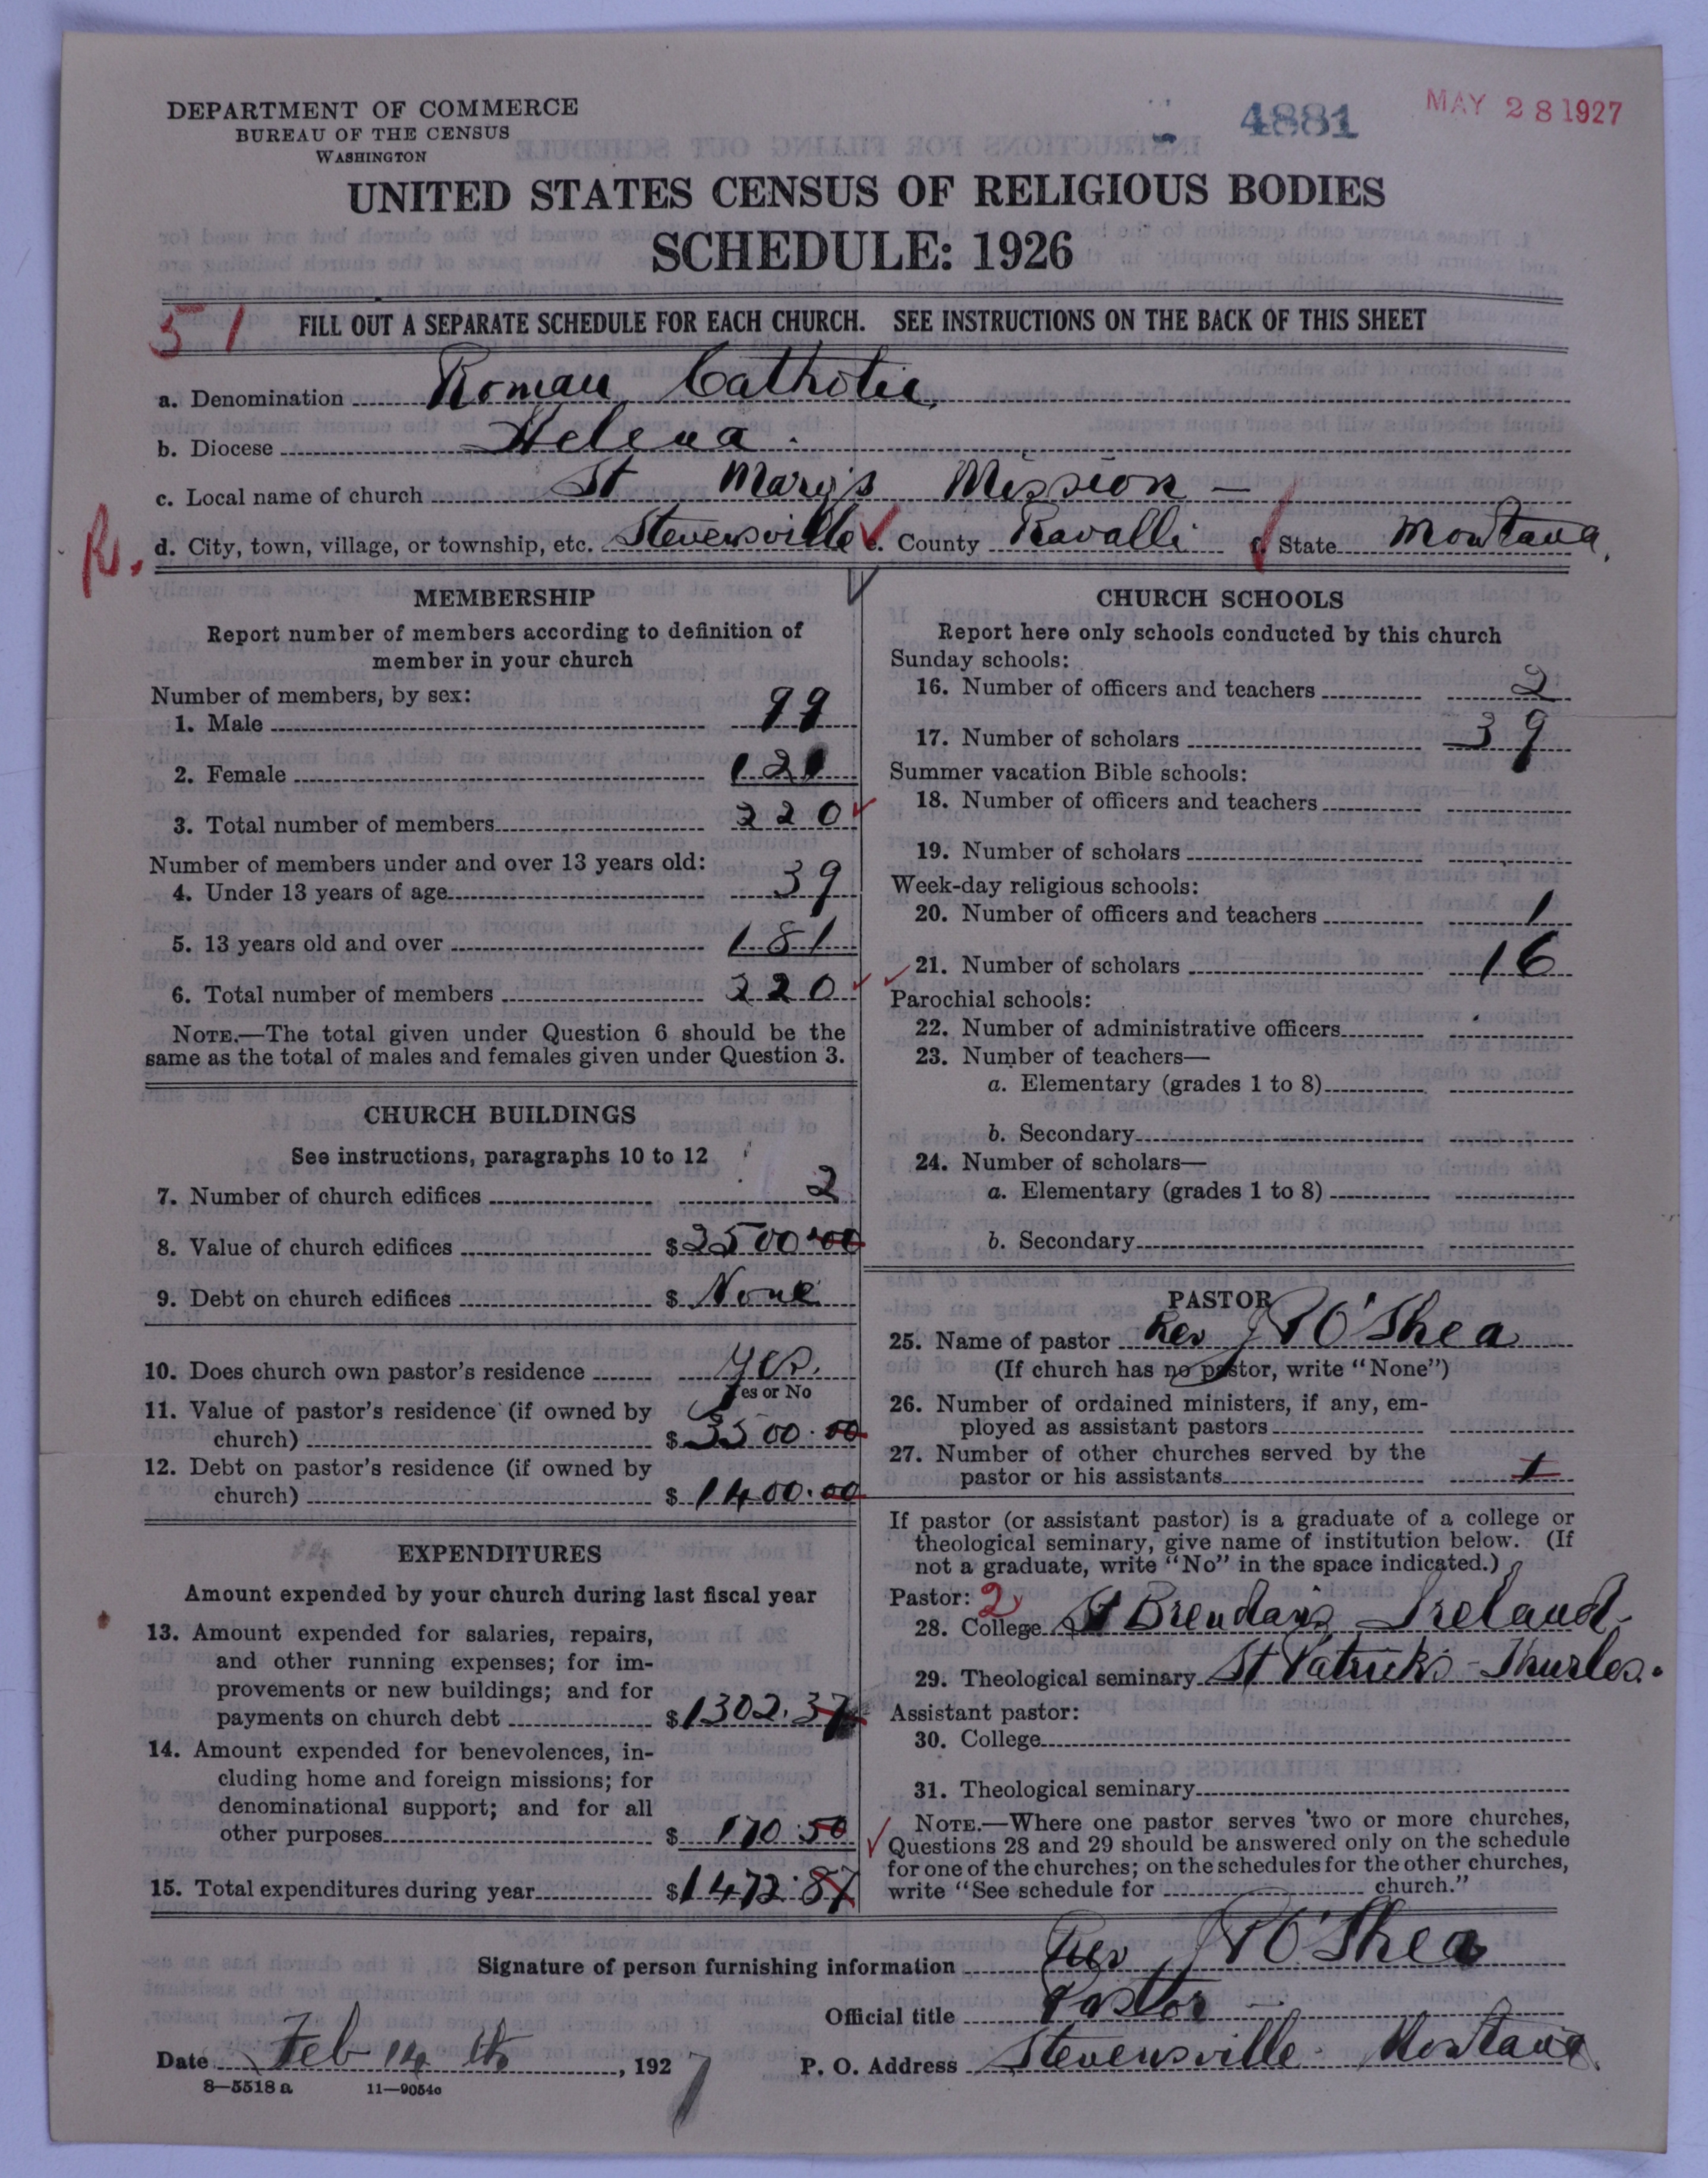 DEPARTMENT OF COMMERCE
BUREAU OF THE CENSUS
WASHINGTON
4881
MAY 28 1927
UNITED STATES CENSUS OF RELIGIOUS BODIES
SCHEDULE: 1926
51
FILL OUT A SEPARATE SCHEDULE FOR EACH CHURCH. SEE INSTRUCTIONS ON THE BACK OF THIS SHEET
a. Denomination Roman Catholic
b. Diocese Helena
c. Local name of church St Mary's Mission -
R. d. City, town, village, or township, etc. Stevensville e. County Ravalli f. State Montana.
MEMBERSHIP
Report number of members according to definition of
member in your church
Number of members, by sex:
1. Male 99
2. Female 121
3. Total number of members 220
Number of members under and over 13 years old:
4. Under 13 years of age 39
5. 13 years old and over 181
6. Total number of members 220
NOTE.—The total given under Question 6 should be the
same as the total of males and females given under Question 3.
CHURCH BUILDINGS
See instructions, paragraphs 10 to 12
7. Number of church edifices 2
8. Value of church edifices $2500.00
9. Debt on church edifices $ None
10. Does church own pastor's residence yes.
Yes or No
11. Value of pastor's residence (if owned by
church) $3500.00
12. Debt on pastor's residence (if owned by
church) $1400.00
EXPENDITURES
Amount expended by your church during last fiscal year
13. Amount expended for salaries, repairs,
and other running expenses; for im-
provements or new buildings; and for
payments on church debt $1302.37
14. Amount expended for benevolences, in-
cluding home and foreign missions; for
denominational support; and for all
other purposes $ 170.50
15. Total expenditures during year $1472.87
CHURCH SCHOOLS
Report here only schools conducted by this church
Sunday schools:
16. Number of officers and teachers 2
17. Number of scholars 39
Summer vacation Bible schools:
18. Number of officers and teachers
19. Number of scholars
Week-day religious schools:
20. Number of officers and teachers 1
21. Number of scholars 16
Parochial schools:
22. Number of administrative officers
23. Number of teachers—
a. Elementary (grades 1 to 8)
b. Secondary
24. Number of scholars—
a. Elementary (grades 1 to 8)
b. Secondary
PASTOR
25. Name of pastor Rev J P O'Shea
(If church has no pastor, write "None")
26. Number of ordained ministers, if any, em-
ployed as assistant pastors
27. Number of other churches served by the
pastor or his assistants 1
If pastor (or assistant pastor) is a graduate of a college or
theological seminary, give name of institution below. (If
not a graduate, write "No" in the space indicated.)
Pastor: 2
28. College St Brendan's Ireland
29. Theological seminary St Patrick's - Thurles.
Assistant pastor:
30. College
31. Theological seminary
NOTE.—Where one pastor serves two or more churches,
Questions 28 and 29 should be answered only on the schedule
for one of the churches; on the schedules for the other churches,
write "See schedule for church."
Signature of person furnishing information Rev J P O'Shea
Official title Pastor
Date Feb 14 th, 1927 P. O. Address Stevensville Montana.
8—5518 a 11—9054c